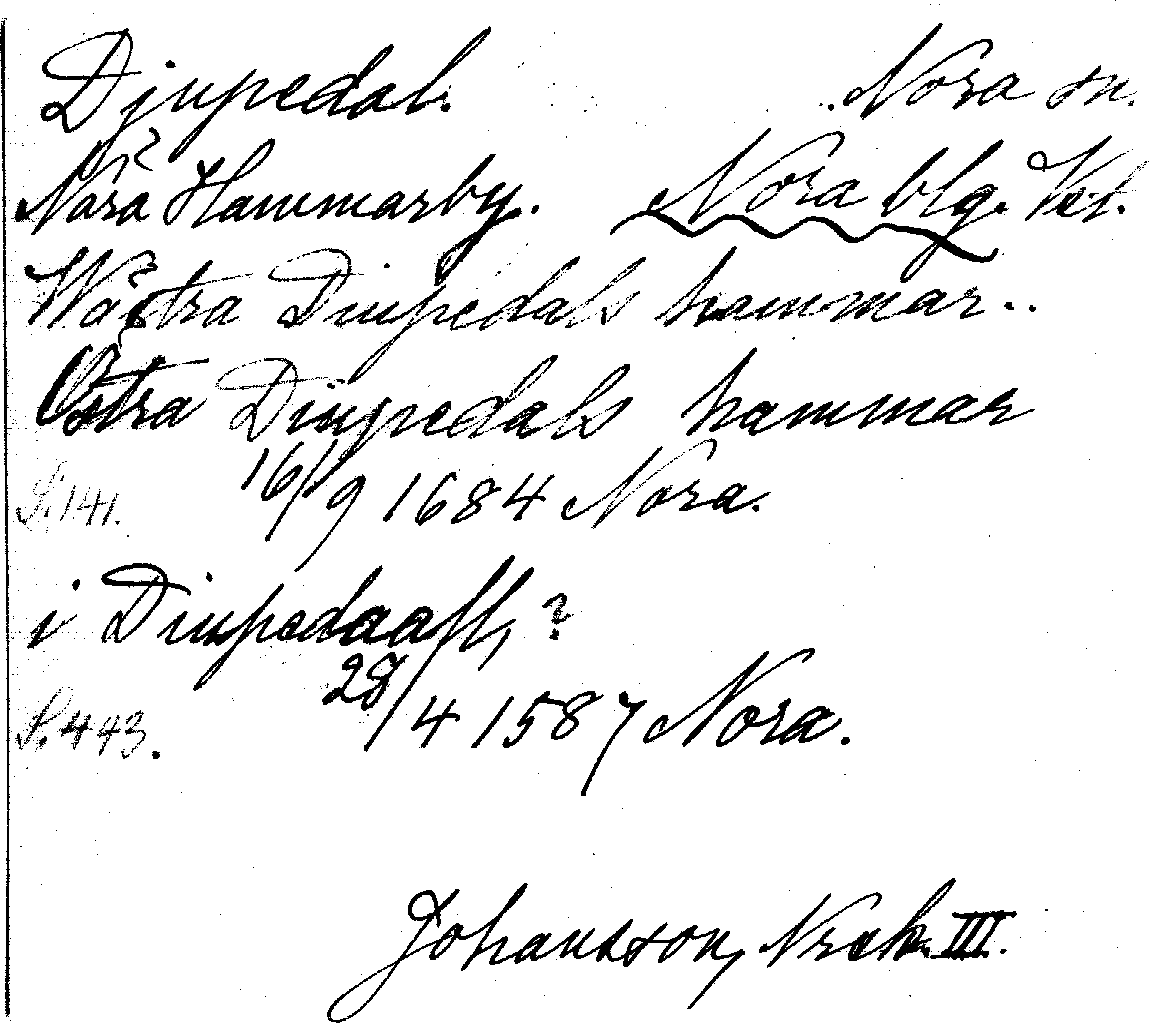 Djupedal. Nora sn.
Nora Hammarby. Nora blg. Vst.
Wästra Diupedals hammar..
Östra Diupedals hammar
S. 141. 16/9 1684 Nora.
i Diupedaall, ?
S. 443. 28/4 1587 Nora.
Johansson, Nrsk. III.